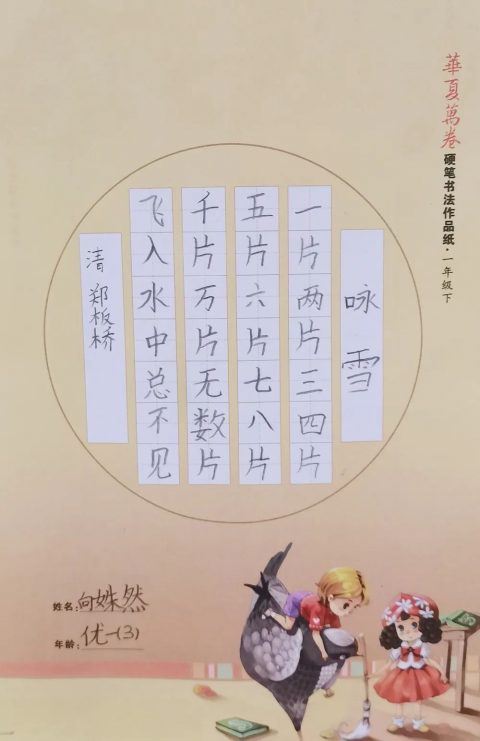 華夏萬卷
硬笔书法作品纸·一年级下
咏雪
一片两片三四片
五片六片七八片
千片万片无数片
飞入水中总不见
清 郑板桥
姓名:向姝然
年龄:优一(3)